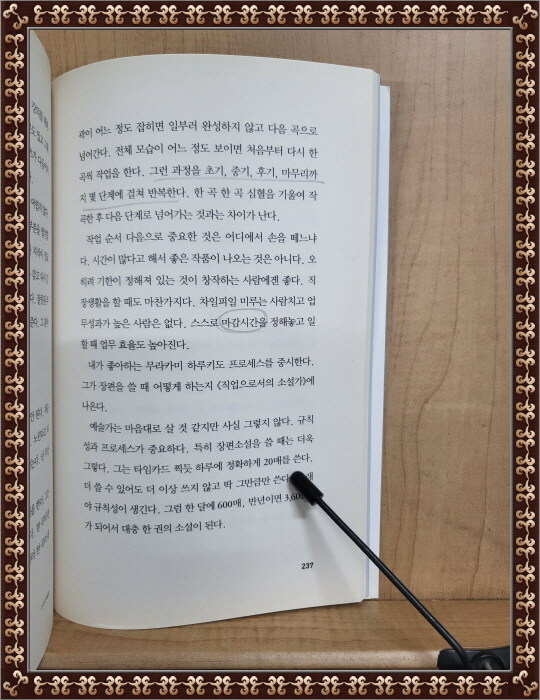 곽이 어느 정도 잡히면 일부러 완성하지 않고 다음 곡으로
넘어간다. 전체 모습이 어느 정도 보이면 처음부터 다시 한
곡씩 작업을 한다. 그런 과정을 초기, 중기, 후기, 마무리까
지 몇 단계에 걸쳐 반복한다. 한 곡 한 곡 심혈을 기울여 작
곡한 후 다음 단계로 넘어가는 것과는 차이가 난다.
작업 순서 다음으로 중요한 것은 어디에서 손을 떼느냐
다. 시간이 많다고 해서 좋은 작품이 나오는 것은 아니다. 오
히려 기한이 정해져 있는 것이 창작하는 사람에겐 좋다. 직
장생활을 할 때도 마찬가지다. 차일피일 미루는 사람치고 업
무성과가 높은 사람은 없다. 스스로 마감시간을 정해놓고 일
할 때 업무 효율도 높아진다.
내가 좋아하는 무라카미 하루키도 프로세스를 중시한다.
그가 장편을 쓸 때 어떻게 하는지 《직업으로서의 소설가》에
나온다.
예술가는 마음대로 살 것 같지만 사실 그렇지 않다. 규칙
성과 프로세스가 중요하다. 특히 장편소설을 쓸 때는 더욱
그렇다. 그는 타임카드 찍듯 하루에 정확하게 20매를 쓴다.
더 쓸 수 있어도 더 이상 쓰지 않고 딱 그만큼만 쓴다
야 규칙성이 생긴다. 그럼 한 달에 600매, 반년이면
가 되어서 대충 한 권의 소설이 된다.
237